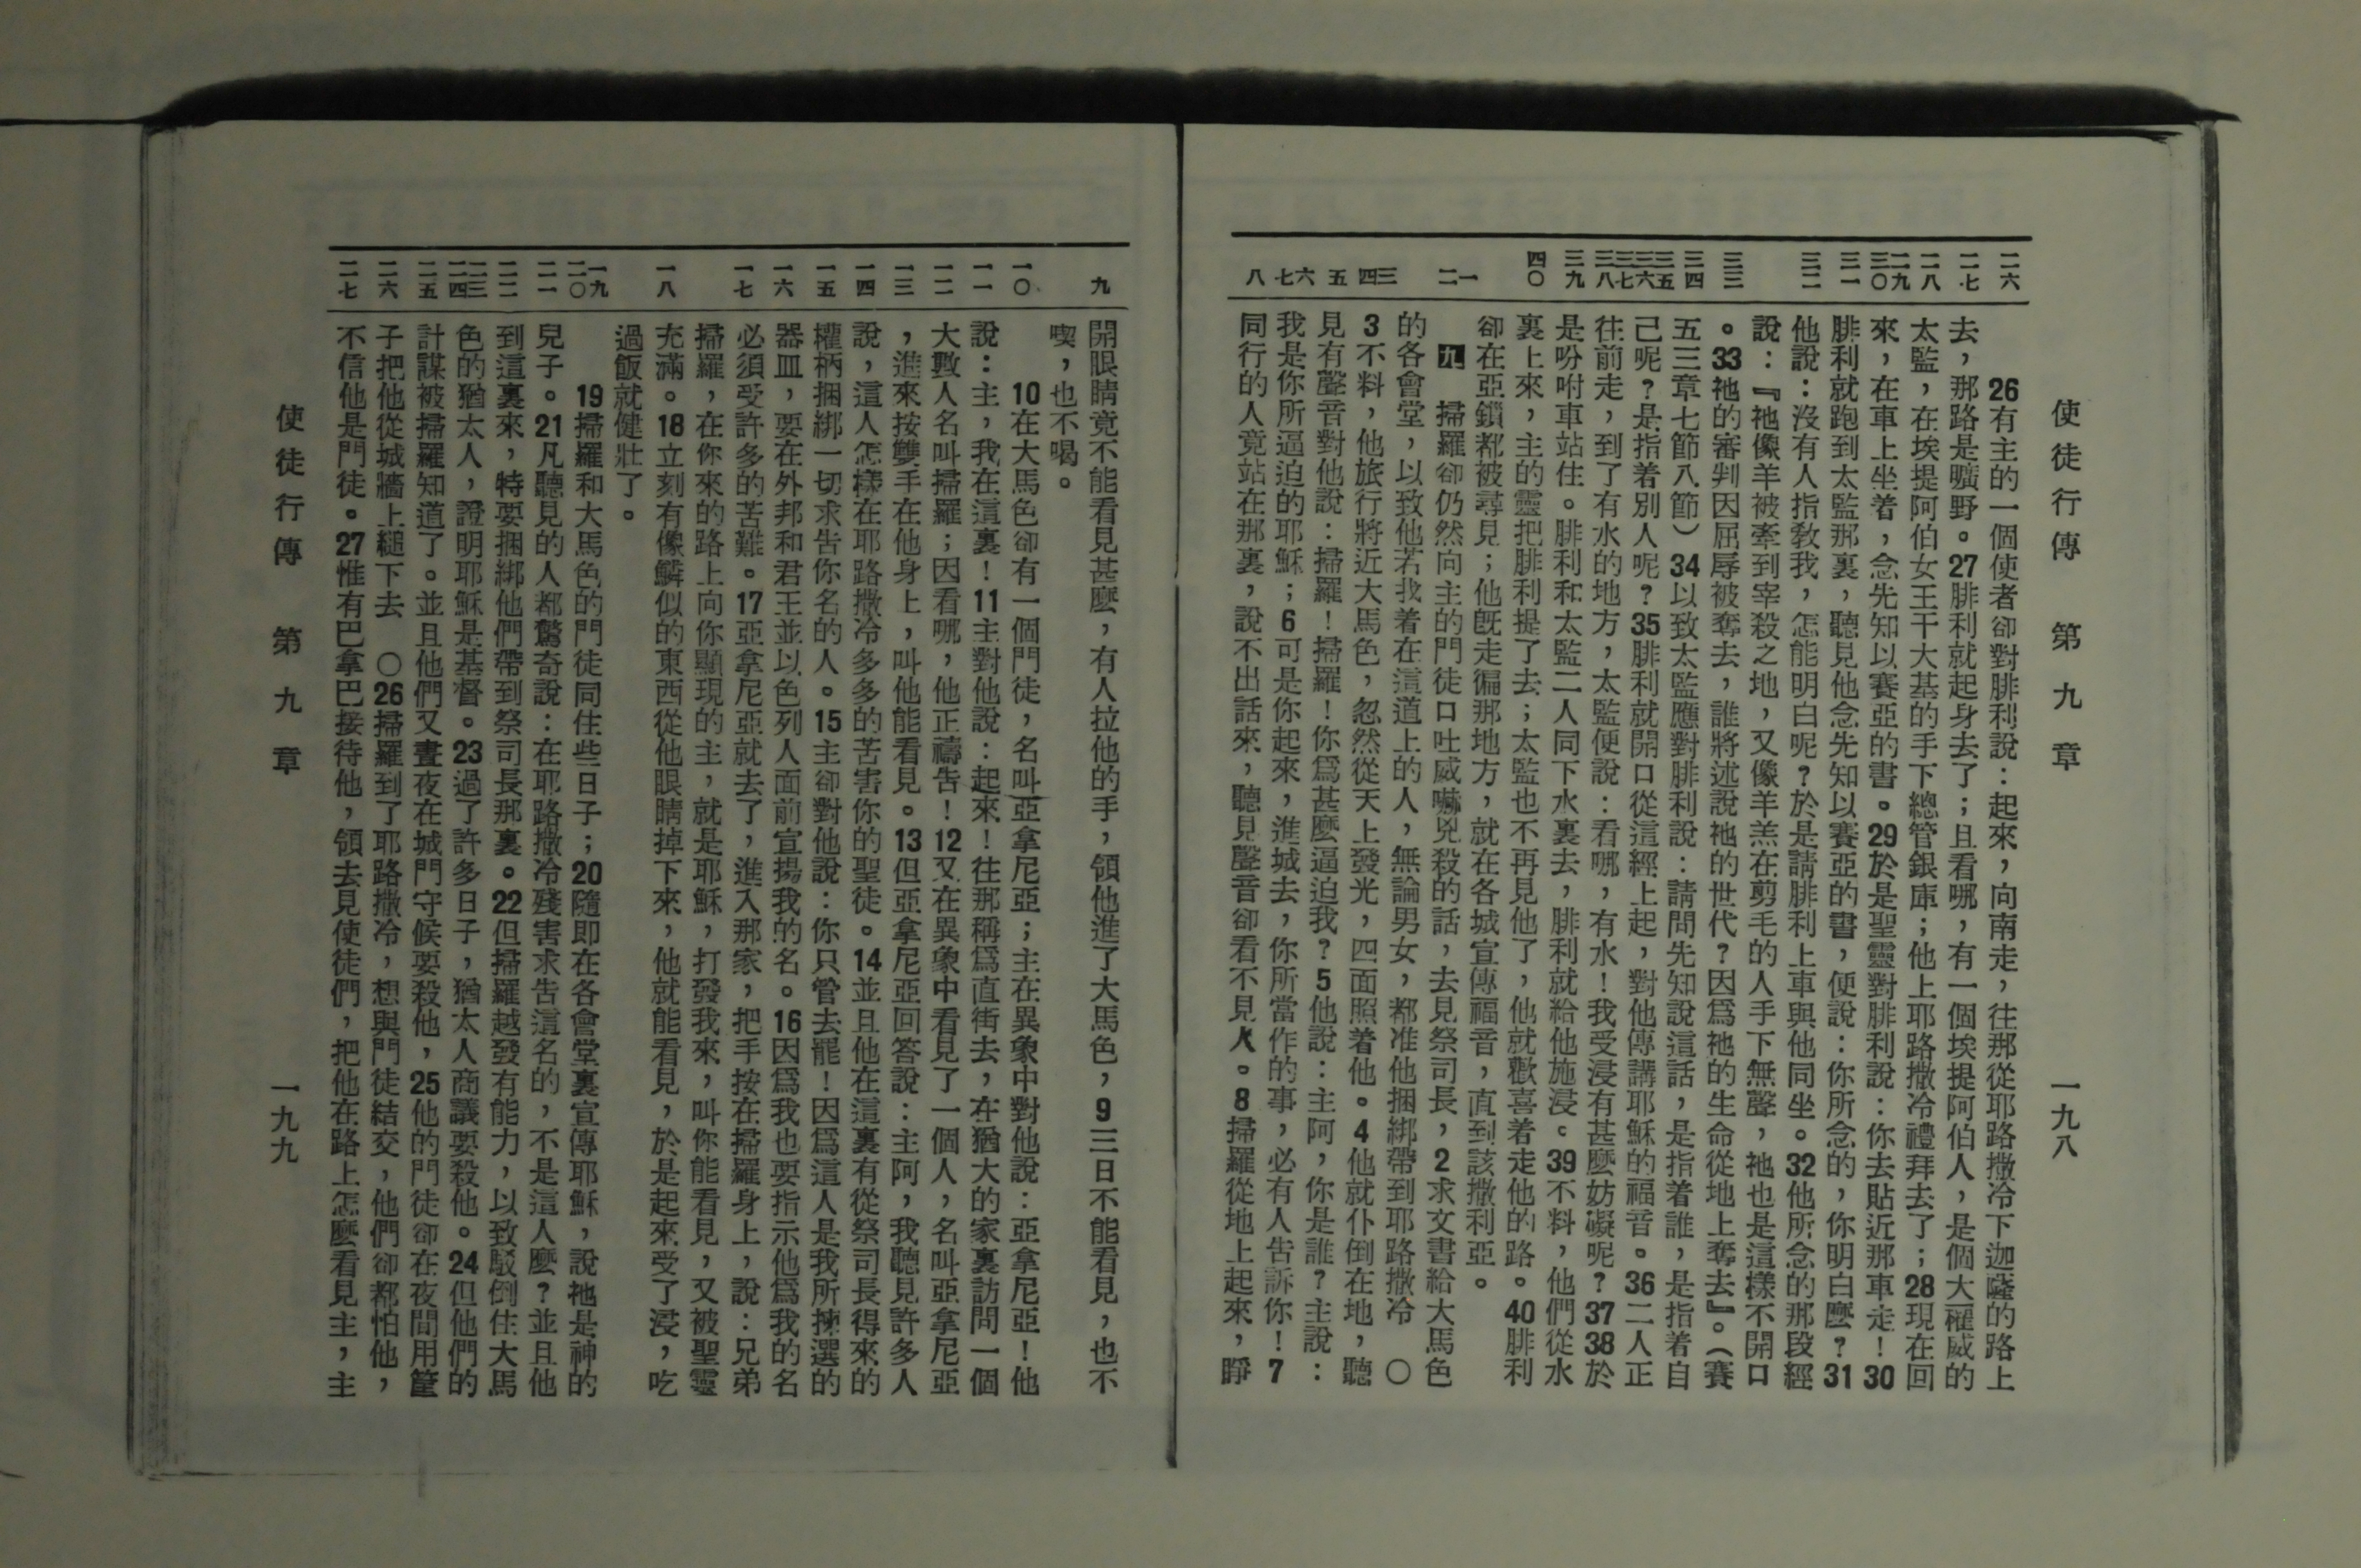 使徒行傳　第九章　一九八
二六　二七　二八　二九　三〇　三一　三二　三三　三四　三五　三六　三七　三八　三九　四〇　一　二　三　四　五　六　七　八
26有主的一個使者卻對腓利說：起來，向南走，往那從耶路撒冷下迦薩的路上
去，那路是曠野。27腓利就起身去了；且看哪，有一個埃提阿伯人，是個大權威的
太監，在埃提阿伯女王干大基的手下總管銀庫；他上耶路撒冷禮拜去了；28現在回
來，在車上坐着，念先知以賽亞的書。29於是聖靈對腓利說：你去貼近那車走！30
腓利就跑到太監那裏，聽見他念先知以賽亞的書，便說：你所念的，你明白麼？31
他說：沒有人指教我，怎能明白呢？於是請腓利上車與他同坐。32他所念的那段經
說：『祂像羊被牽到宰殺之地，又像羊羔在剪毛的人手下無聲，祂也是這樣不開口
。33祂的審判因屈辱被奪去，誰將述說祂的世代？因爲祂的生命從地上奪去』。（賽
五三章七節八節）34以致太監應對腓利說：請問先知說這話，是指着誰，是指着自
己呢？是指着別人呢？35腓利就開口從這經上起，對他傳講耶穌的福音。36二人正
往前走，到了有水的地方，太監便說：看哪，有水！我受浸有甚麼妨礙呢？37 38於
是吩咐車站住。腓利和太監二人同下水裏去，腓利就給他施浸。39不料，他們從水
裏上來，主的靈把腓利提了去；太監也不再見他了，他就歡喜着走他的路。40腓利
卻在亞鎖都被尋見；他旣走徧那地方，就在各城宣傳福音，直到該撒利亞。
九　掃羅卻仍然向主的門徒口吐威嚇兇殺的話，去見祭司長，2求文書給大馬色
的各會堂，以致他若找着在這道上的人，無論男女，都准他捆綁帶到耶路撒冷　○
3不料，他旅行將近大馬色，忽然從天上發光，四面照着他。4他就仆倒在地，聽
見有聲音對他說：掃羅！掃羅！你爲甚麼逼迫我？5他說：主阿，你是誰？主說：
我是你所逼迫的耶穌；6可是你起來，進城去，你所當作的事，必有人告訴你！7
同行的人竟站在那裏，說不出話來，聽見聲音卻看不見人。8掃羅從地上起來，睜
九　一〇　一一　一二　一三　一四　一五　一六　一七　一八　一九　二〇　二一　二二　二三　二四　二五　二六　二七
開眼睛竟不能看見甚麼，有人拉他的手，領他進了大馬色，9三日不能看見，也不
喫，也不喝。
10在大馬色卻有一個門徒，名叫亞拿尼亞；主在異象中對他說：亞拿尼亞！他
說：主，我在這裏！11主對他說：起來！往那稱爲直街去，在猶大的家裏訪問一個
大數人名叫掃羅；因看哪，他正禱告！12又在異象中看見了一個人，名叫亞拿尼亞
，進來按雙手在他身上，叫他能看見。13但亞拿尼亞回答說：主阿，我聽見許多人
說，這人怎樣在耶路撒冷多多的苦害你的聖徒。14並且他在這裏有從祭司長得來的
權柄捆綁一切求告你名的人。15主卻對他說：你只管去罷！因爲這人是我所揀選的
器皿，要在外邦和君王並以色列人面前宣揚我的名。16因爲我也要指示他爲我的名
必須受許多的苦難。17亞拿尼亞就去了，進入那家，把手按在掃羅身上，說：兄弟
掃羅，在你來的路上向你顯現的主，就是耶穌，打發我來，叫你能看見，又被聖靈
充滿。18立刻有像鱗似的東西從他眼睛掉下來，他就能看見，於是起來受了浸，吃
過飯就健壯了。
19掃羅和大馬色的門徒同住些日子；20隨即在各會堂裏宣傳耶穌，說祂是神的
兒子。21凡聽見的人都驚奇說：在耶路撒冷殘害求告這名的，不是這人麼？並且他
到這裏來，特要捆綁他們帶到祭司長那裏。22但掃羅越發有能力，以致駁倒住大馬
色的猶太人，證明耶穌是基督。23過了許多日子，猶太人商議要殺他。24但他們的
計謀被掃羅知道了。並且他們又晝夜在城門守候要殺他，25他的門徒卻在夜間用筐
子把他從城牆上縋下去　○26掃羅到了耶路撒冷，想與門徒結交，他們卻都怕他，
不信他是門徒。27惟有巴拿巴接待他，領去見使徒們，把他在路上怎麼看見主，主
使徒行傳　第九章　一九九